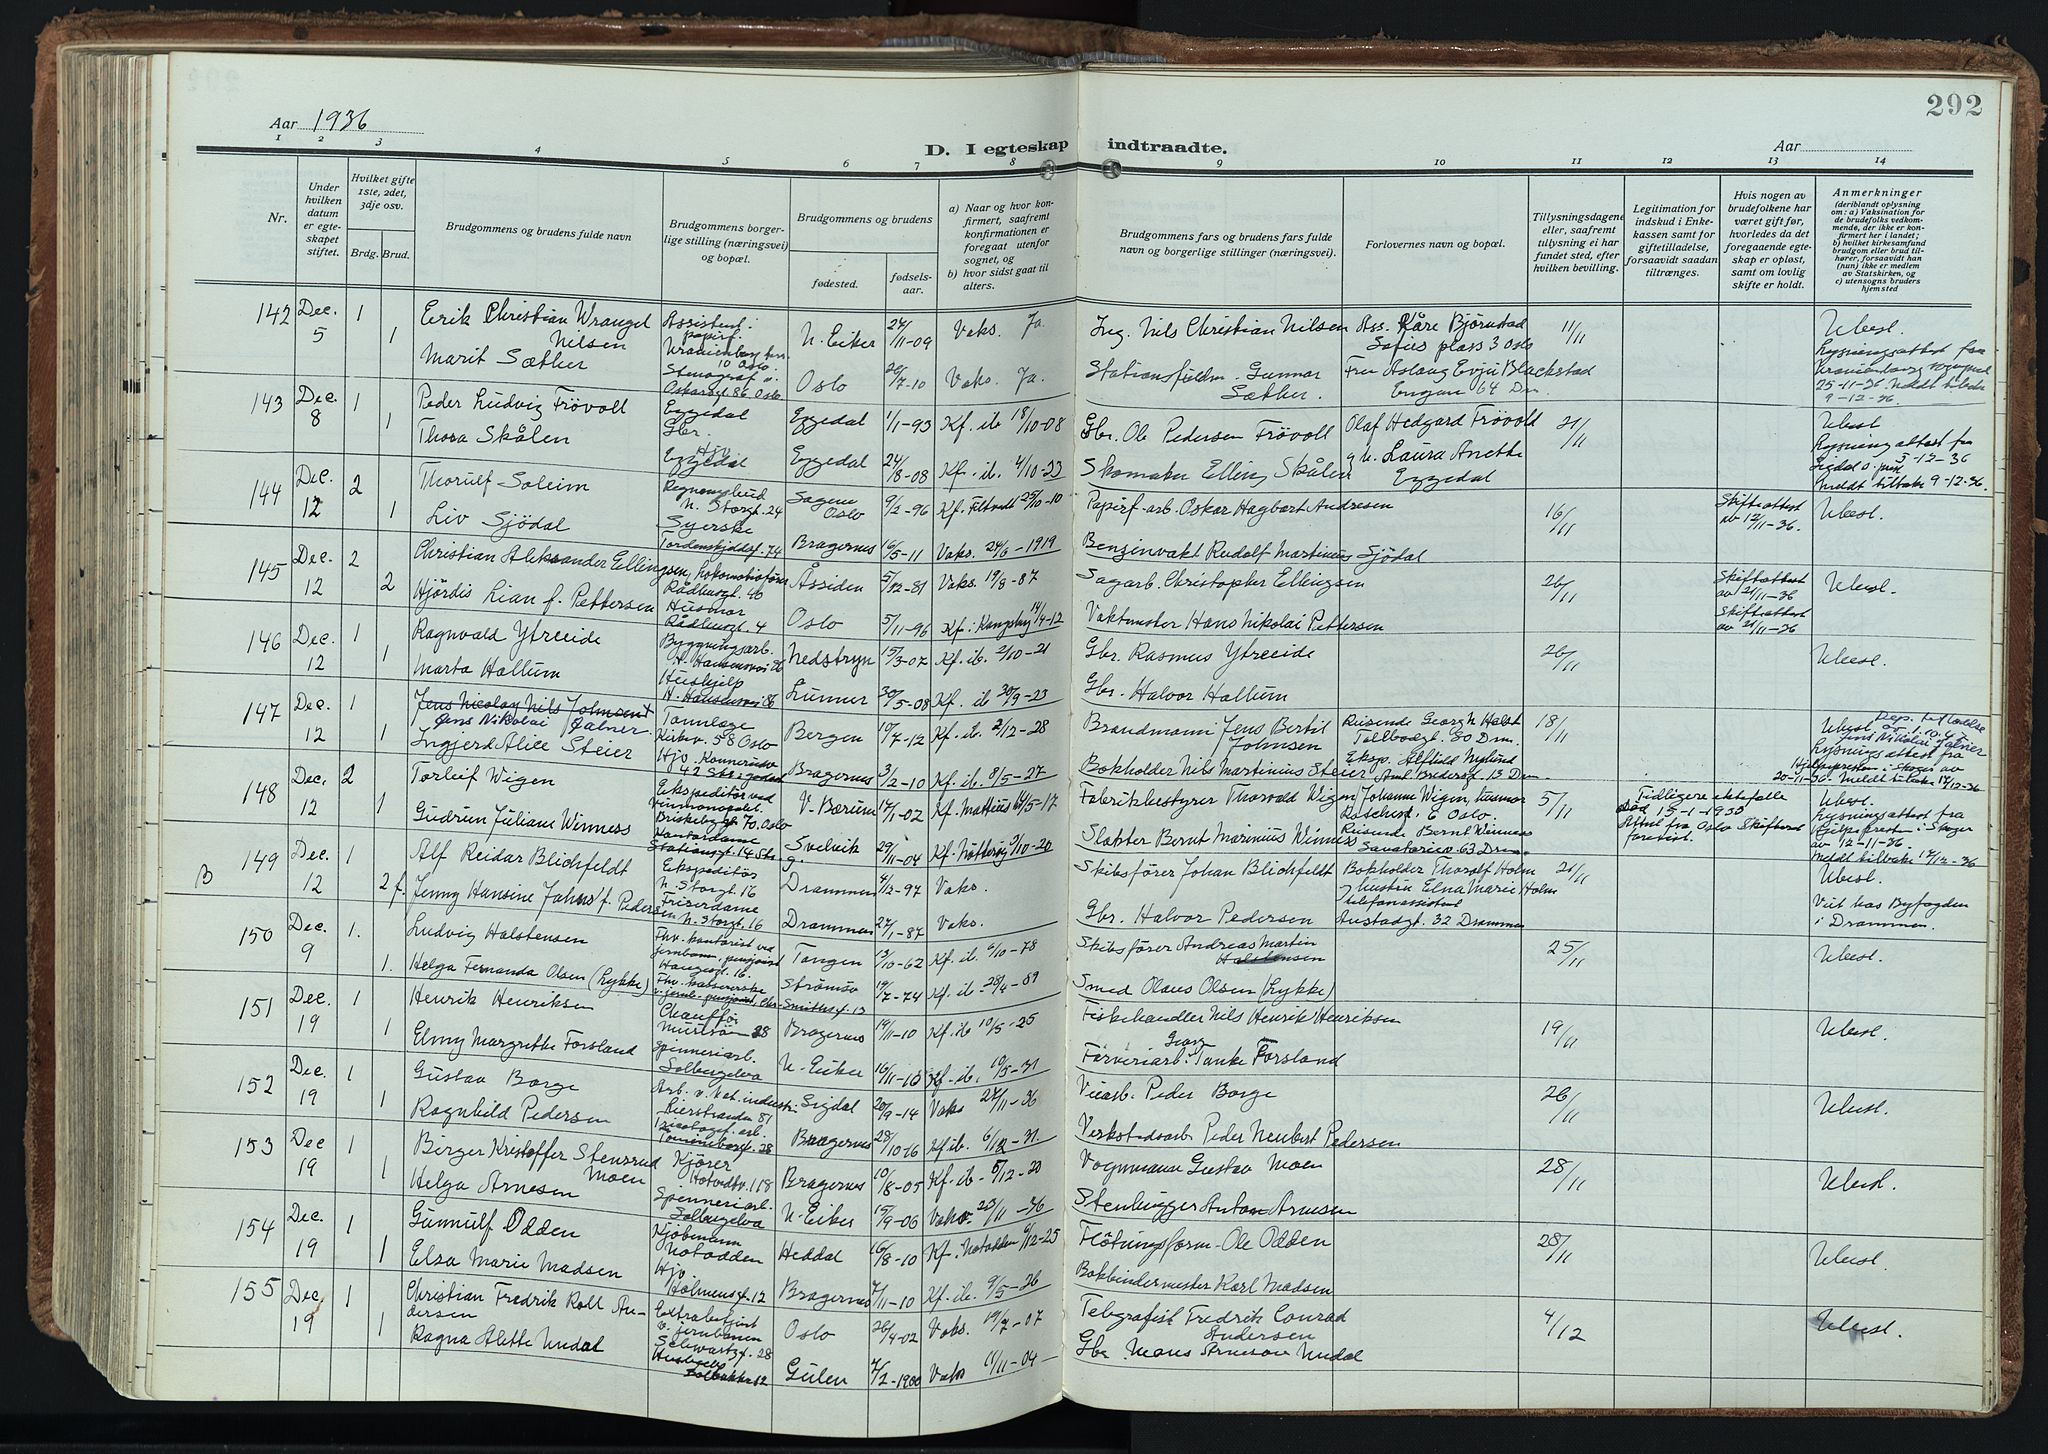 292
Aar 1936
Aar
D. I egteskap indtraadte.
1 2 3 4 5 6 7 8 9 10 11 12 13 14
Nr.
Under hvilken datum er egteskapet stiftet.
Hvilket gifte 1ste, 2det, 3dje osv.
Brdg. Brud.
Brudgommens og brudens fulde navn
Brudgommens borgerlige stilling (næringsvei) og bopæl.
Brudgommens og brudens
fødested. fødselsaar.
a) Naar og hvor konfirmert, saafremt konfirmationen er foregaat utenfor sognet, og
b) hvor sidst gaat til alters.
Brudgommens fars og brudens fars fulde navn og borgerlige stillinger (næringsvei).
Forlovernes navn og bopæl.
Tillysningsdagene eller, saafremt tillysning ei har fundet sted, efter hvilken bevilling.
Legitimation for indskud i Enkekassen samt for giftetilladelse, forsaavidt saadan tiltrænges.
Hvis nogen av brudefolkene har været gift før, hvorledes da det foregaaende egteskap er opløst, samt om lovlig skifte er holdt.
Anmerkninger (deriblandt oplysning om: a) Vaksination for de brudefolks vedkommende, der ikke er konfirmert her i landet; b) hvilket kirkesamfund brudgom eller brud tilhører, forsaavidt han (hun) ikke er medlem av Statskirken, og c) utensogns bruders hjemsted
142 Dec. 5 1 Erik Christian Wrangel Nilsen Assistent N. Eiker 24/11-09 Vaks. Ja. Ing. Nils Christian Nilsen Ass. Kåre Bjørnstad Sofies plass 3 Oslo 11/11 Ubesl.
1 Marit Sæther Oslo Vaks. Ja. Gunnar Sæther. Fru Aslaug Evju Blackstad Engene 64 Dm.
25-11-36. Meldt tilbake 9-12-36
143 Dec. 8 1 Peder Ludvig Frövoll Eggedal Gbr. Eggedal 1/1-93 Kf. ib 18/10-08 Gbr. Ole Pedersen Frövoll Olaf Hedgard Frövold 21/11 Ubesl
1 Thora Skålen Hjv. Eggedal Eggedal 24/8-08 Kf. ib. 4/10-23 Skomaker Elling Skålen Laura Anette Eggedal
5-12-36 Meldt tilbake 9-12-36.
144 Dec. 12 2 Thorulf Soleim N. Storgt. 24 Sagene Oslo 9/2-96 Kf. Filtvedt 25/10-10 Papirf.arb. Oskar Hagbart Andresen 16/11 Skifteattest av 12/11-36. Ubesl.
1 Liv Sjödal Syerske Tordenskjoldsgt. 74 Bragernes 16/5-11 Vaks. 24/6-1919 Benzinvakt Rudolf Martinius Sjödal
145 Dec. 12 2 Christian Aleksander Ellingsen, Lokomotivfører Rådhusgt. 40 Åssiden 5/12-81 Vaks. 19/8-87 Sagarb. Christopher Ellingsen 26/11 Skifteattest av 21/11-36 Ubesl.
2 Hjördis Lian f. Pettersen Husmor Rådhusgt. 4 Oslo 5/11-96 Kf. i Kongsberg 14/4-12 Vaktmester Hans Nikolai Pettersen Skifteattest av 21/11-36
146 Dec. 12 1 Ragnvald Ytreeide Bygningsarb. Nedstryn 15/3-07 Kf. ib. 2/10-21 Gbr. Rasmus Ytreeide 26/11 Ubesl.
1 Marta Hallum Hushjelp Lunner 30/5-08 Kf. ib 30/9-23 Gbr. Halvor Hallum
147 Dec. 12 1 Jens Nicolay Nils Johnsen Jens Nikolai Jalner. Tannlæge Kirkev. 58 Oslo Bergen 10/7-12 Kf. ib. 2/12-28 Brandmann Jens Bertil Johnsen Reisende Georg N. Holst Tollbodgt. 80 Drm. 18/11 Ubesl.
1 Ingjerd Alice Steier Hjv. Bragernes 3/2-10 Kf. ib. 8/5-27 Bokholder Nils Martinius Steier Eksp. Alfhild Nylund
20-11-36. Meldt tilbake 14/12-36
148 Dec. 12 2 Torleif Wigen Ekspeditør ved Vinmonopolet Briskebygt. 70, Oslo V. Bærum 14/1-02 Kf. Mattius 14/5-17 Fabrikbestyrer Thorvald Wigen Johanne Wigen, husmor Oslo. 5/11 Tidligere ektefelle Død 19-1-1935 Attest fra Oslo Skifterett forevist. Ubesl.
1 Gudrun Juliane Winness Kontordame Svelvik 29/11-04 Kf. Nøtterøy 3/10-20 Slakter Bernt Marinius Winness Reisende Bernt Winness Sanatoriev. 63 Drm.
av 12-11-36. Meldt tilbake 14/12-36
149 Dec. 12 1 Alf Reidar Blichfeldt Ekspeditör N. Storgt. 16 Drammen 4/12-97 Vaks. Skibsfører Johan Blichfeldt Bokholder Thoralf Holm 21/11 Ubesl.
B 2 f. Jenny Hansine Jahns f. Pedersen Friserdame N. Storgt. 16 Drammen 27/1-87 Vaks. Gbr. Halvor Pedersen hustru Elna Marie Holm telefonassistent Austadgt. 32 Drammen Viet hos Byfogden i Drammen.
150 Dec. 9 1. Ludvig Halstensen Fhv. kontorist ved Jernban. pensjonist Haugesgt. 16. Tangen 13/10-62 Kf. ib. 6/10-78 Skibsfører Andreas Martin Halstensen 25/11 Ubesl.
1. Helga Fernanda Olsen (Lykke) Strömsø 19/7-74 Kf. ib. 28/4-89 Smed Olaus Olsen (Lykke)
151 Dec. 19 1 Henrik Henriksen Chauffør 28 Bragernes 19/11-10 Kf. ib 10/5-25 Fiskehandler Nils Henrik Henriksen 19/11 Ubesl.
1 Elmy Margrethe Forsland Spinneriarb. Solbergelva N. Eiker 16/11-16 Kf. ib. 10/5-31 Farveriarb. Georg Tanke Forsland
152 Dec. 19 1 Gustav Borge Lierstranda 81 Sigdal 20/9-14 Vaks 24/11-36 Veiarb. Peder Borge 26/11 Ubesl.
1 Ragnhild Pedersen Tricotagef.arb. Bragernes 28/10-16 Kf. ib. 6/12-31. Verkstedsarb Peder Neubert Pedersen
153 Dec 19 1 Birger Kristoffer Stensrud Moen Kjører Hotvedtv. 118 Bragernes 10/8-05 Kf. ib. 5/12-20 Vognmann Gustav Moen 28/11 Ubesl.
1 Helga Arnesen Spinneriarb. Solbergelva N. Eiker 15/9-06 Vaks. 23/11-36 Stenhugger Anton Arnesen
154 Dec. 19 1 Gunnulf Odden Kjøbmann Notodden Heddal 16/8-10 Kf. Notodden 6/12-25 Flötningsform. Ole Odden 28/11 Ubesl.
1 Elsa Marie Madsen Hjv Holmensgt. 12 Bragernes 7/11-10 Kf. ib. 9/5-26 Bokbindermester Karl Madsen
155 Dec. 19 1 Christian Fredrik Roll Andersen Extrabetjent v. jernbanen Schwartzgt. 28 Oslo 26/4-02 Vaks. 19/7-07 Telegrafist Fredrik Conrad Andersen 4/12 Ubesl.
1 Ragna Alette Undal Gulen 7/2-1900 Vaks 11/11-04 Gbr. Mons Arneson Undal